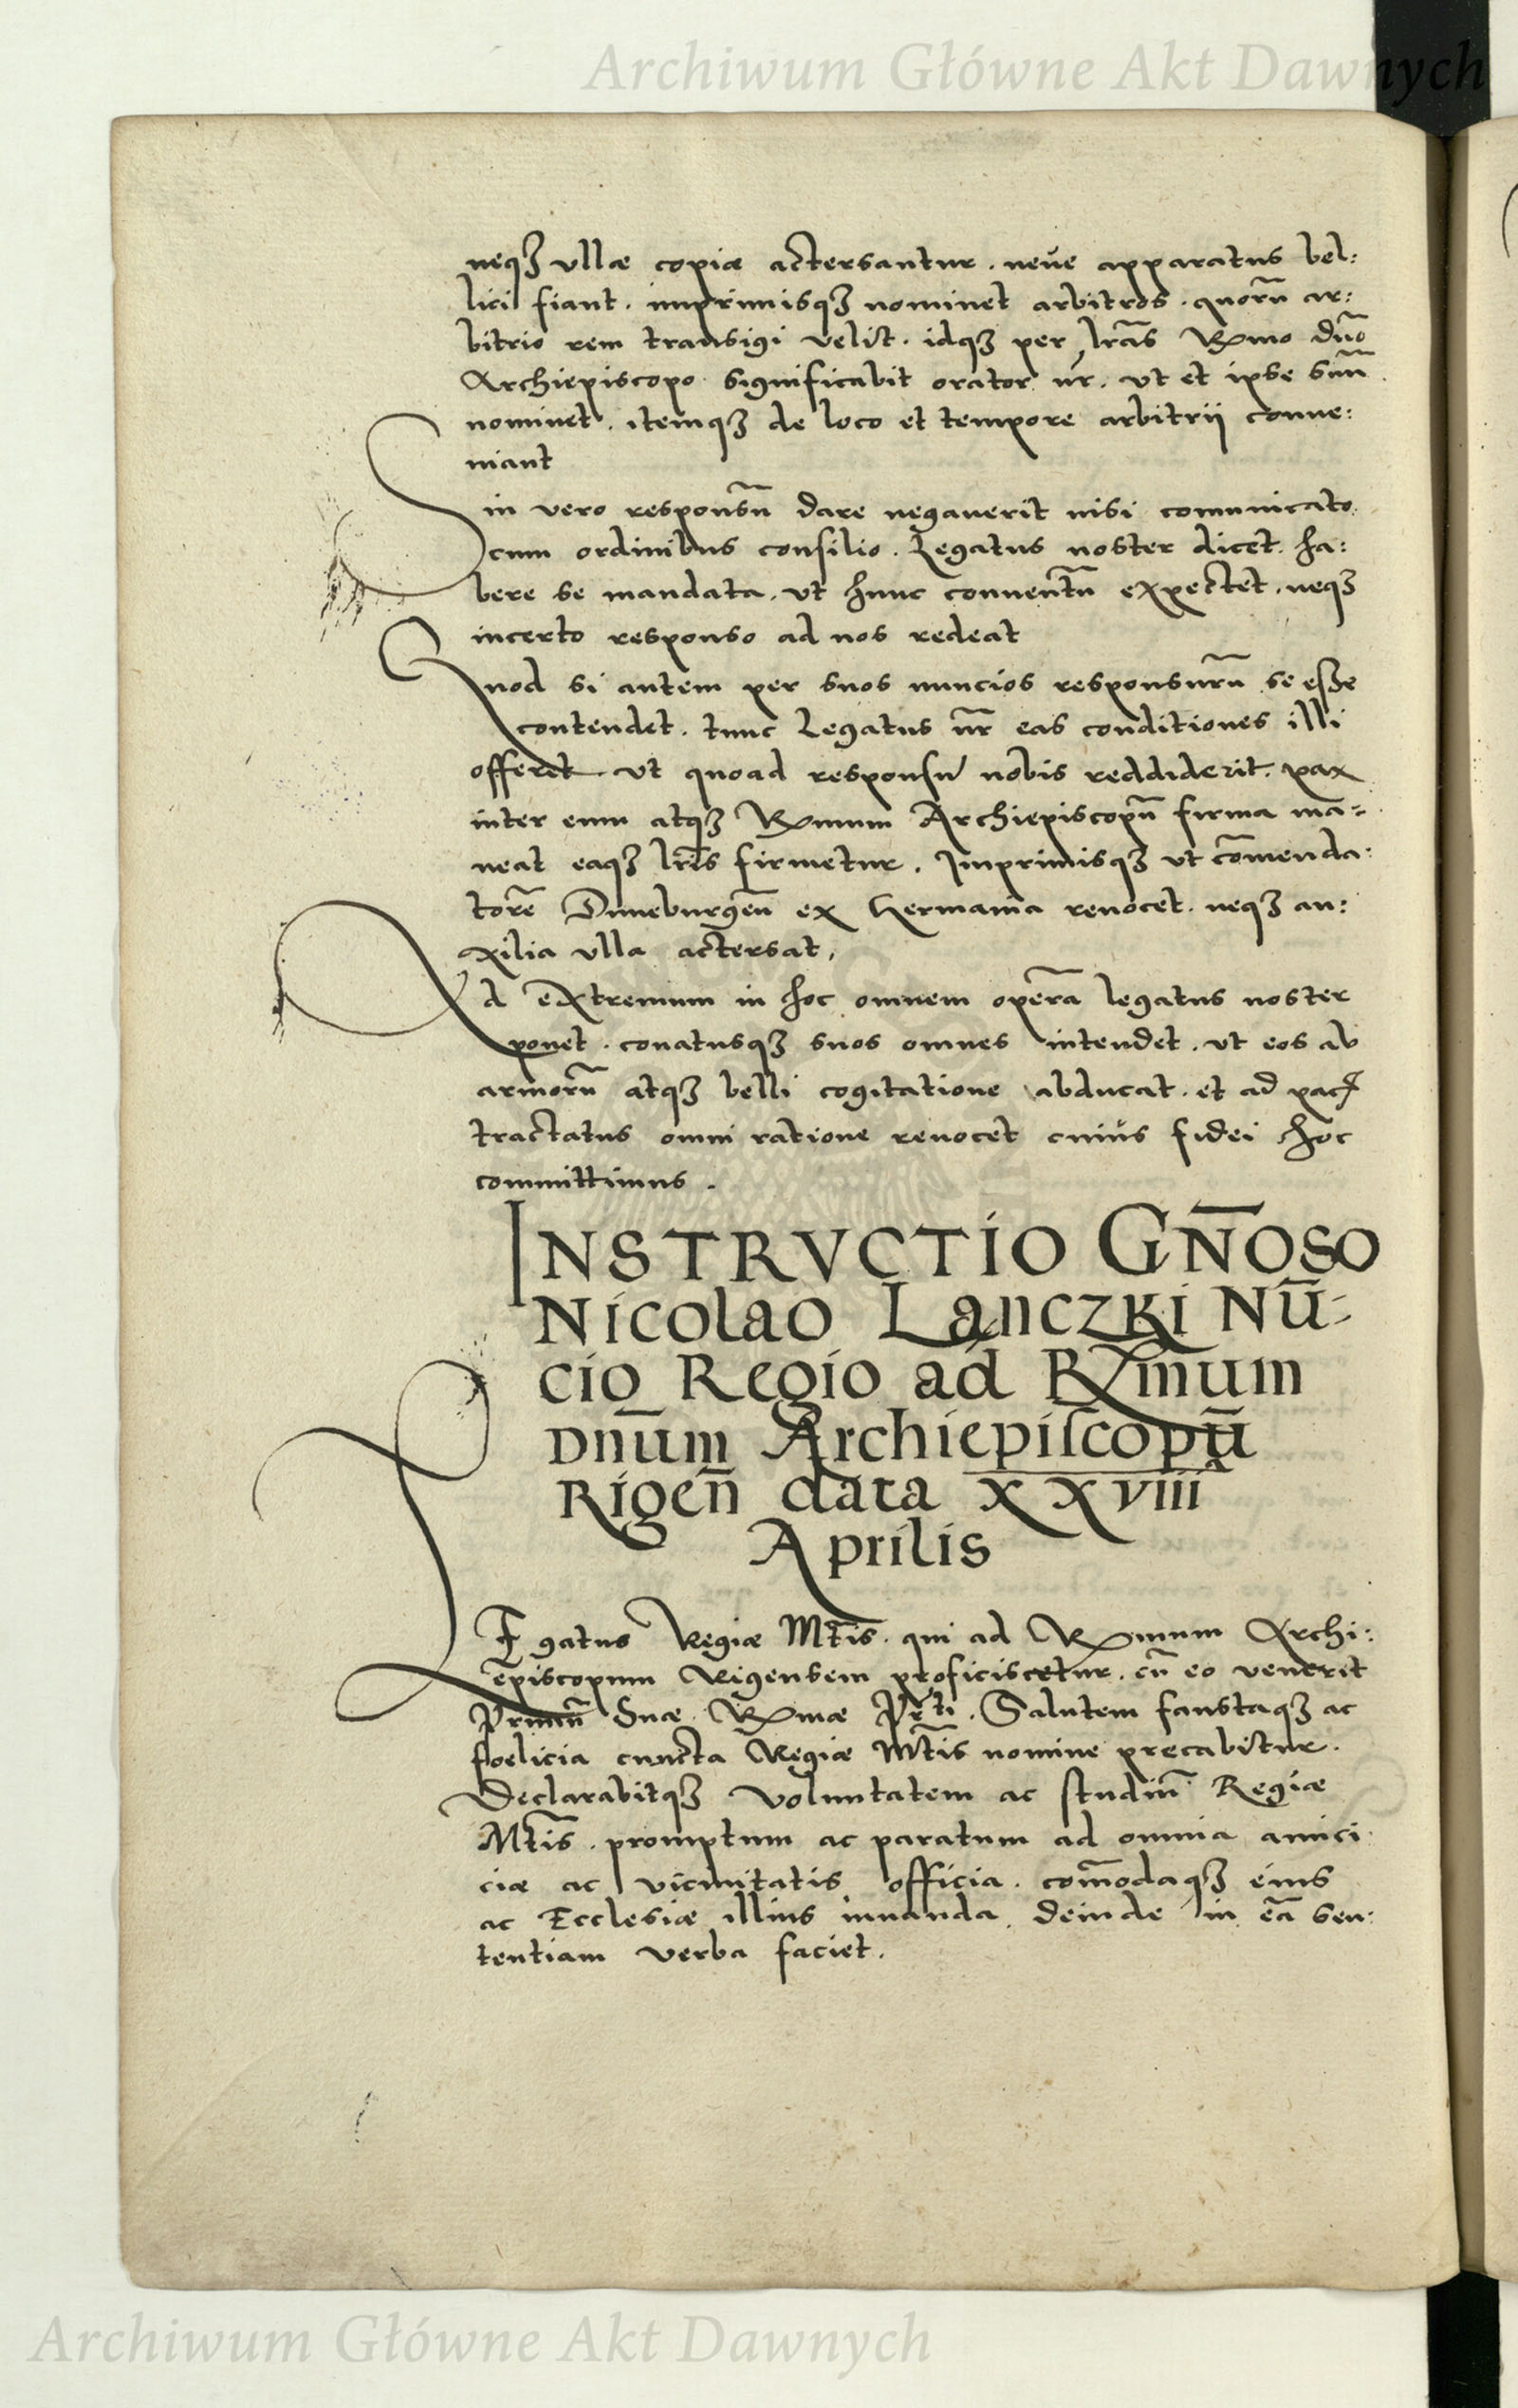 Archiwum Główne Akt Dawnych
neqꝫ vllæ copiæ actersantur . neve apparatus bel:
lici fiant . imprimisqꝫ nominet arbitros . quorū ar:
bitrio rem transigi velit . idqꝫ per lr̄as Rmo dn̄o
Archiepiscopo significabit orator nr̄ . vt et ipse suū
nominet . itemqꝫ de loco et tempore arbitrij conve:
niant
Sin vero responsū dare negaverit nisi comunicato
cum ordinibus consilio . Legatus noster dicet . ha:
bere se mandata . vt hunc conventū expectet . neqꝫ
incerto responso ad nos redeat
Quod si autem per suos nuncios responsurū se esse
contendet . tunc Legatus nr̄ eas conditiones illi
offeret vt quoad responsū nobis reddiderit . pax
inter eum atqꝫ Rmum Archiepiscopū firma ma-
neat eaqꝫ lr̄is firmetur . Imprimisqꝫ vt cōmenda:
torē Duneburgeñ ex Germania revocet . neqꝫ au:
xilia vlla actersat,
Ad extremum in hoc omnem operā legatus noster
ponet . conatusqꝫ suos omnes intendet . vt eos ab
armorū atqꝫ belli cogitatione abducat . et ad pacꝭ
tractatus omni ratione revocet cuius fidei hoc
committimus .
INSTRVCTIO GN̄OSO
Nicolao Lanczki Nū-
cio Regio ad Rm̄um
Dn̄um Archiepiſcopū
Rigen̄ data xxviii
Aprilis
LEgatus Regiæ Mt̄is . qui ad Rmum Archi:
episcopum Rigensem proficiscetur . cū eo venerit
Primū Suæ Rmæ Pr̄ti . Salutem faustaqꝫ ac
foelicia cuncta Regiæ Mt̄is nomine precabitur .
Declarabitqꝫ voluntatem ac studiū Regiæ
Mt̄is . promptum ac paratum ad omnia amici:
ciæ ac vicinitatis officia . com̄odaqꝫ eius
ac Ecclesiæ illius iuvanda . deinde in eā sen:
tentiam verba faciet .
Archiwum Główne Akt Dawnych